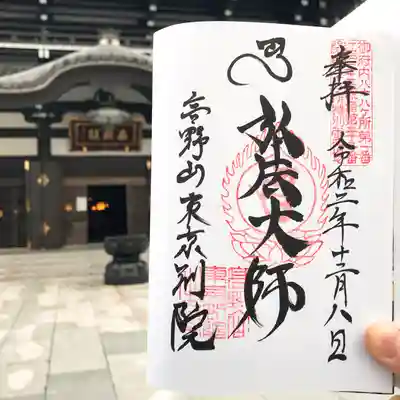 奉拝 令和二年十二月八日
御府内八十八ヶ所第一番
弘法大師
高野山東京別院